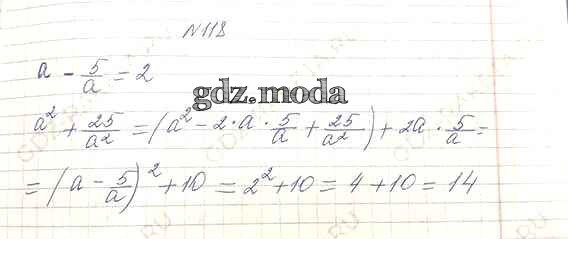 N118
a - 5/a = 2
gdz.moda
a² + 25/a² = (a² - 2·a·5/a + 25/a²) + 2a·5/a =
= (a - 5/a)² + 10 = 2² + 10 = 4 + 10 = 14